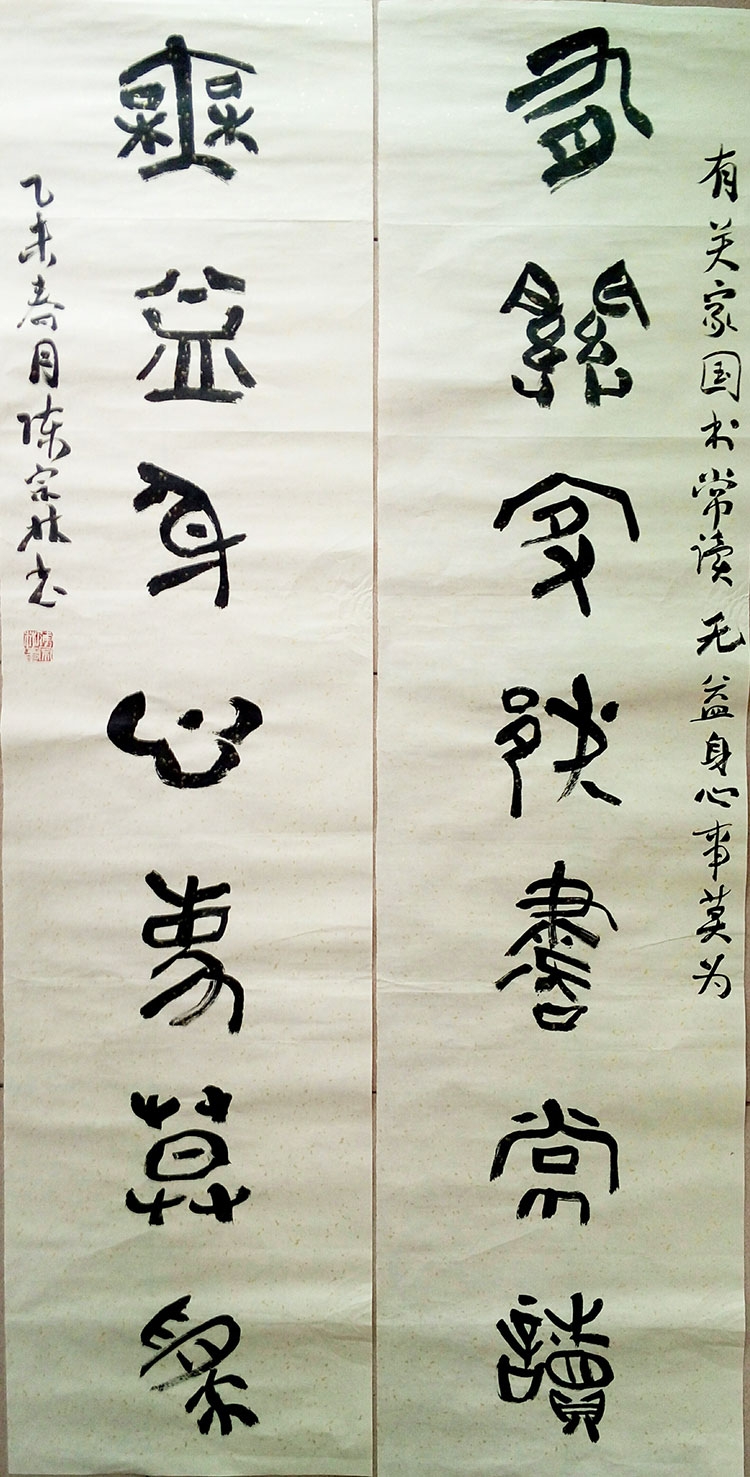 有关家国书常读 无益身心事莫为
有關家國書常讀
無益身心事莫為
乙未春月陈宗林书